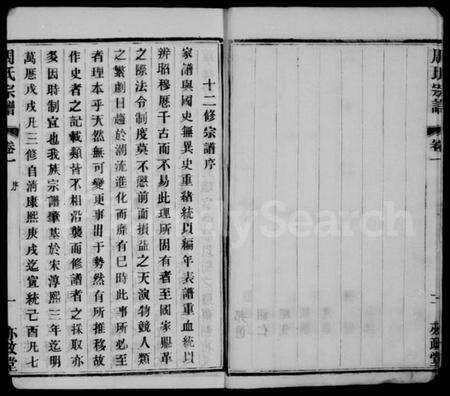 十二修宗譜序
家譜與國史無異史重緒統以編年表譜重血統以
辨昭穆歷千古而不易此理所固有者至國家鼎革
之際法令制度莫不懲前而損益之天演物競人類
之繁劇日趨於潮流進化而靡有已時此事所必至
者理本乎天然無可變更事出于勢然有所推移故
作史者之記載類皆不相沿襲而修譜者之採取亦
多因時制宜也我族宗譜肇基於宋淳熙三年迄明
萬厯戊戌凡三修自淸康熙庚戌迄宣統己酉凡七
周氏宗譜
卷一
序
一
亦政堂
周氏宗譜
卷一
亦政堂
MySearch